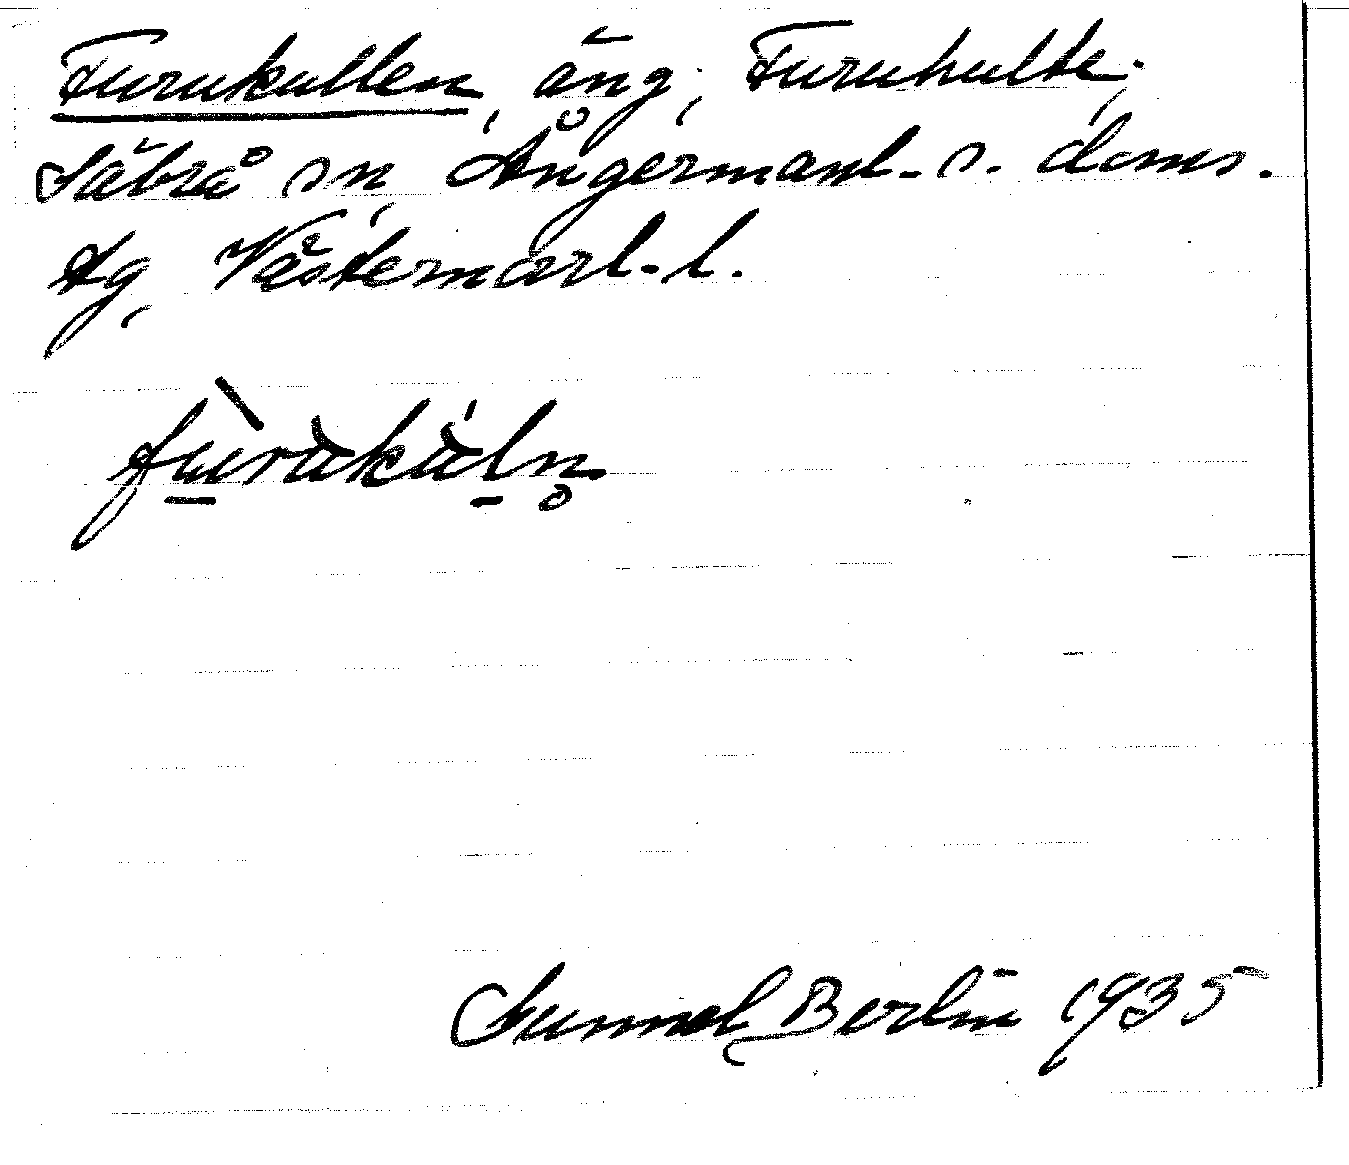 Furukullen, äng, Furuhulte,
Säbrå sn, Ångermanl. s. doms.
tg, Västernorrl. l.
Gunnel Berlin 1935